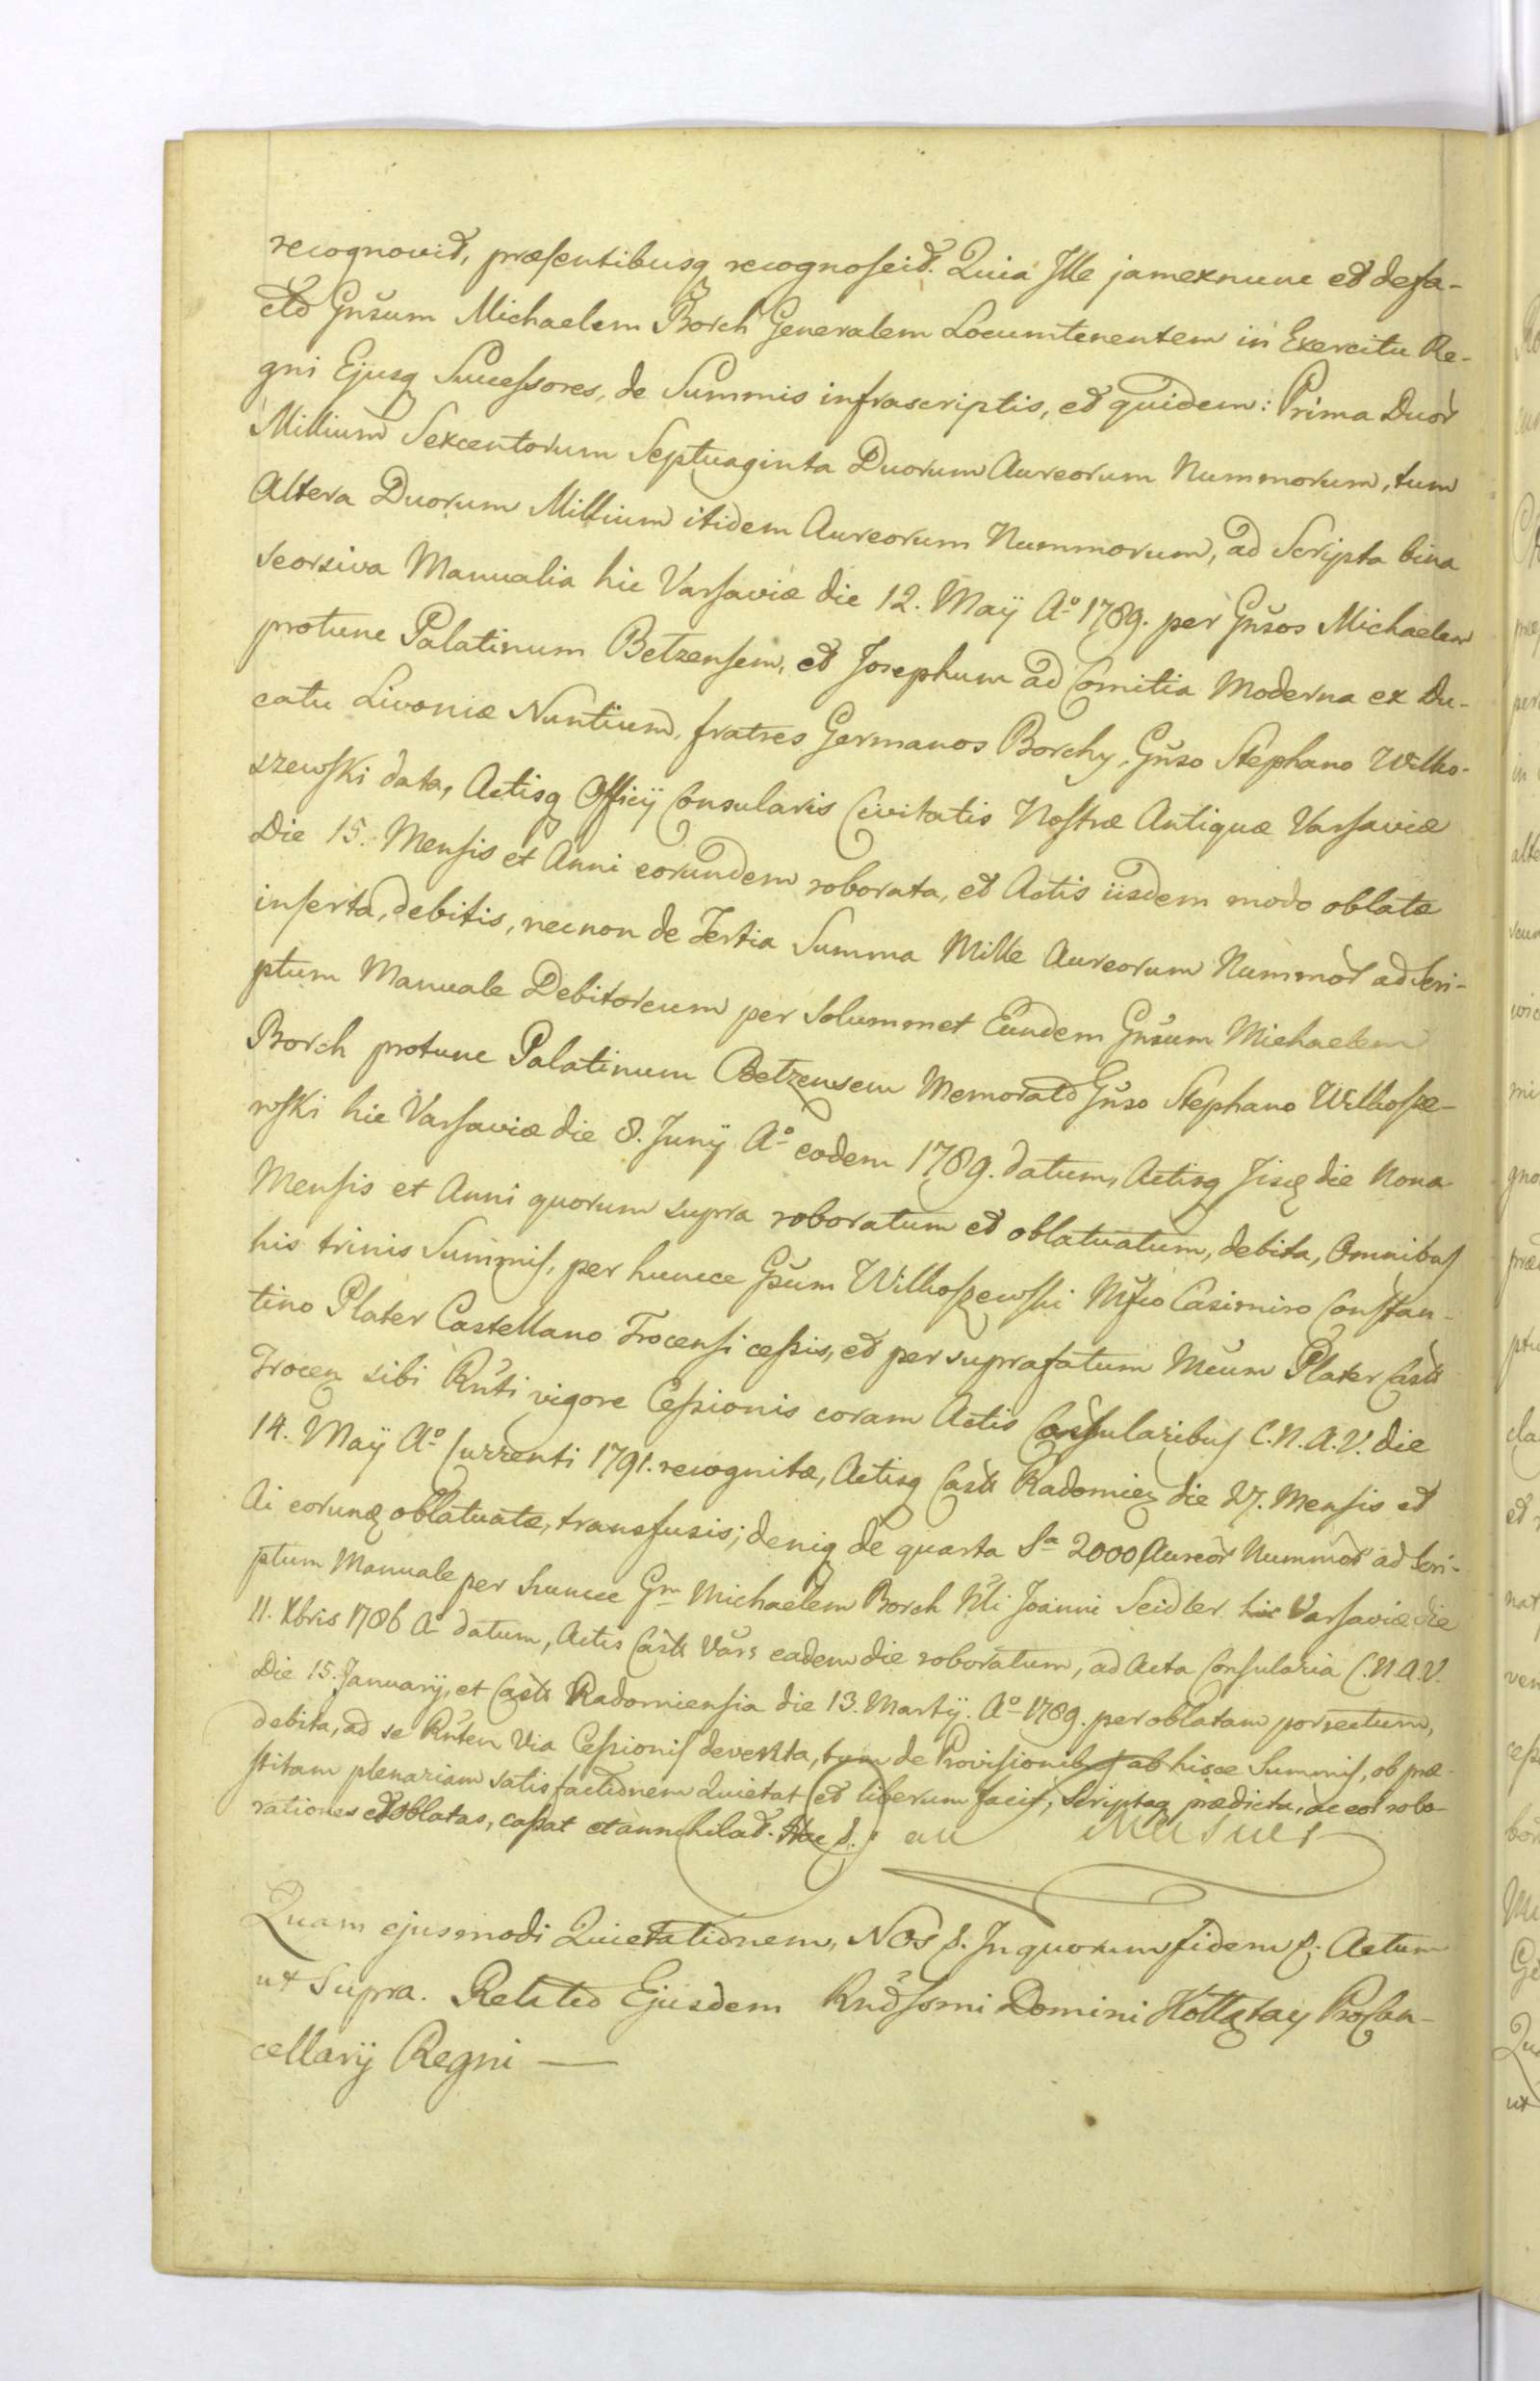 recognovit, præsentibusq recognoscit. Quia Ille jam exnunc et defa-
cto Gnsum Michaelem Borch Generalem Locumtenentem in Exercitu Re-
gni Ejusq Successores, de Summis infrascriptis, et quidem: Prima Duor
Millium Sexcentorum Septuaginta Duorum Aureorum Nummorum, tum
Altera Duorum Millium itidem Aureorum Nummorum, ad Scripta bina
seorsiva Manualia hic Varsaviæ die 12. Maÿ Aº 1789. per Gnsos Michaelem
protunc Palatinum Betzensem, et Josephum ad Comitia Moderna ex Du-
catu Livoniæ Nuntium, fratres Germanos Borchy, Gnso Stephano Wilko-
szewski data, Actisq Officÿ Consularis Civitatis Nostræ Antiquæ Varsaviæ
Die 15. Mensis et Anni eorundem roborata, et Actis iisdem modo oblatæ
inserta, debitis, necnon de Tertia Summa Mille Aureorum Nummor ad Scri-
ptum Manuale Debitoreum per Solummet Eundem Gnsum Michaelem
Borch protunc Palatinum Betzensem Memorato Gnso Stephano Wilkosze-
wski hic Varsaviæ die 8. Junÿ Aº eodem 1789. datum, Actisq Jisq die Nona
Mensis et Anni quorum supra roboratum et oblatuatum, debita, Omnibus
his trinis Summis, per huncce Gsum Wilkoszewski Mfco Casimiro Constan-
tino Plater Castellano Trocensi cessis, et per suprafatum Mcum Plater Castr
Trocen sibi Rnti vigore Cessionis coram Actis Consularibus C.N.A.V. die
14. Maÿ Aº Currenti 1791. recognitæ, Actisq Castr Radomien die 27. Mensis et
Ai eorunq oblatuatæ, transfusis; deniq de quarta Sa 2000 Aureor Nummor ad Scri-
ptum Manuale per huncce Gm Michaelem Borch Nli Joanni Seidler hic Varsaviæ die
11. Xbris 1786 Aº datum, Actis Castr Vars eadem die roboratum, ad Acta Consularia C.N.A.V.
Die 15. Januarÿ, et Castr Radomiensia die 13. Martÿ. Aº 1789. per oblatam porrectum,
debita, ad se Rnten Via Cessionis devecta, tum de Provisionibus ab hisce Summis, ob præ-
stitam plenariam satisfactionem Quietat et liberum facit, Scriptaq prædicta, ac eor robo-
rationes et oblatas, cassat et annihilat. Hoc S.
Quam ejusmodi Quietationem, NOS S. In quorum fidem S. Actum
ut Supra. Relatio Ejusdem Rndssmi Domini Kołłątay ProCan-
cellarÿ Regni —